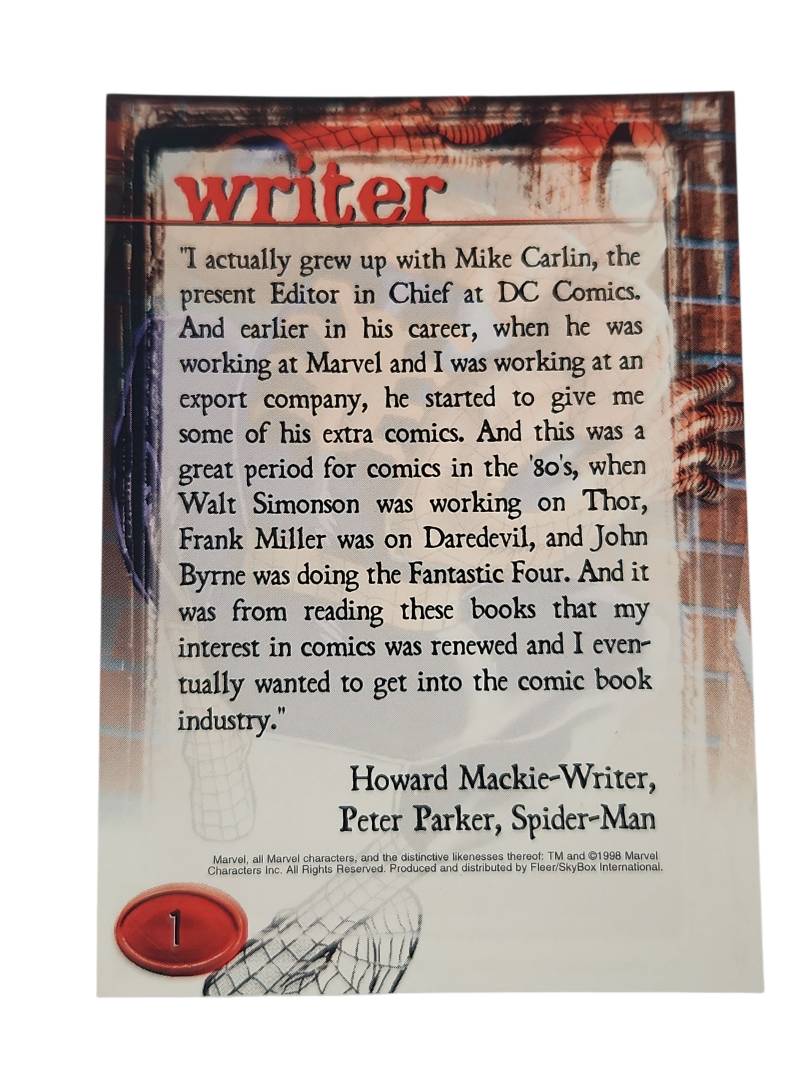 writer
"I actually grew up with Mike Carlin, the
present Editor in Chief at DC Comics.
And earlier in his career, when he was
working at Marvel and I was working at an
export company, he started to give me
some of his extra comics. And this was a
great period for comics in the '80's, when
Walt Simonson was working on Thor,
Frank Miller was on Daredevil, and John
Byrne was doing the Fantastic Four. And it
was from reading these books that my
interest in comics was renewed and I even-
tually wanted to get into the comic book
industry."
Howard Mackie-Writer,
Peter Parker, Spider-Man
Marvel, all Marvel characters, and the distinctive likenesses thereof: TM and ©1998 Marvel
Characters Inc. All Rights Reserved. Produced and distributed by Fleer/SkyBox International.
1